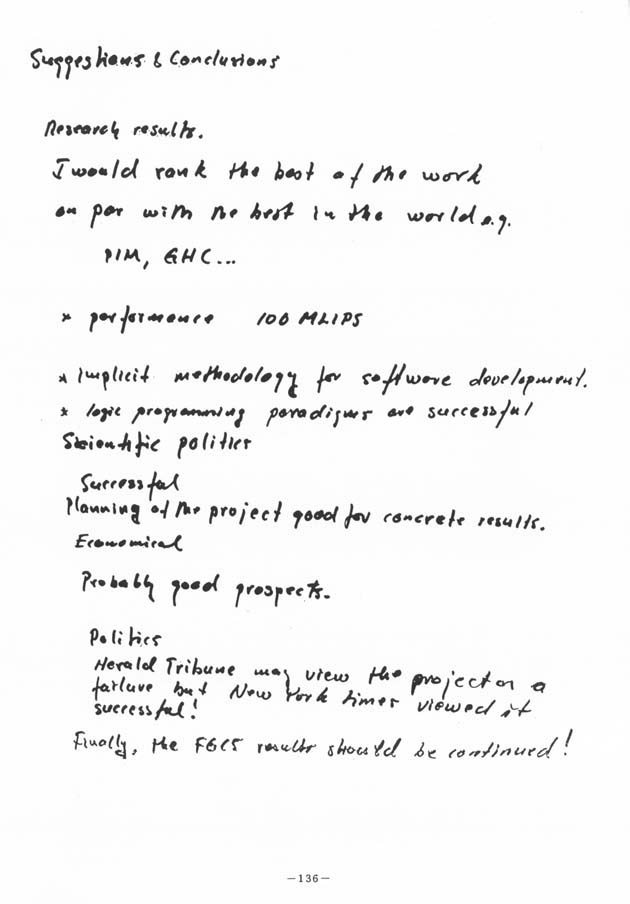 Suggestions & Conclusions
Research results.
I would rank the best of the work
on par with the best in the world e.g.
PIM, GHC...
* performance 100 MLIPS
* implicit methodology for software development.
* logic programming paradigms are successful
Scientific politics
Successful
Planning of the project good for concrete results.
Economical
Probably good prospects.
Politics
Herald Tribune may view the project as a
failure but New York times viewed it
successful!
Finally, the FGCS results should be continued!
—136—